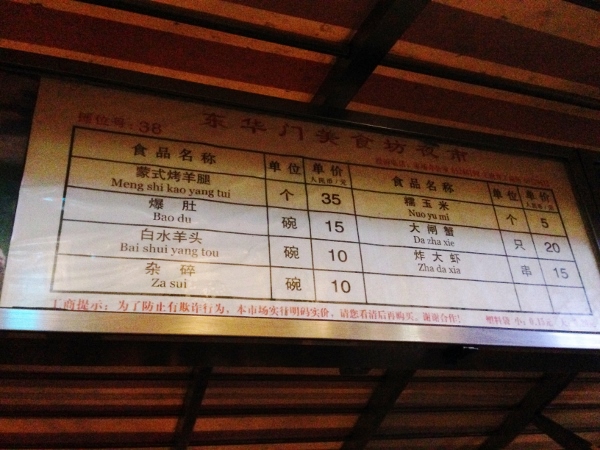 摊位号:38
东华门美食坊夜市
食品名称 单位 单价
人民币/元
蒙式烤羊腿
Meng shi kao yang tui 个 35
爆肚
Bao du 碗 15
白水羊头
Bai shui yang tou 碗 10
杂碎
Za sui 碗 10
食品名称 单位 单价
人民币/元
糯玉米
Nuo yu mi 个 5
大闸蟹
Da zha xie 只 20
炸大虾
Zha da xia 串 15
工商提示:为了防止有欺诈行为,本市场实行明码实价,请您看清后再购买。谢谢合作!
塑料袋 小:0.35元